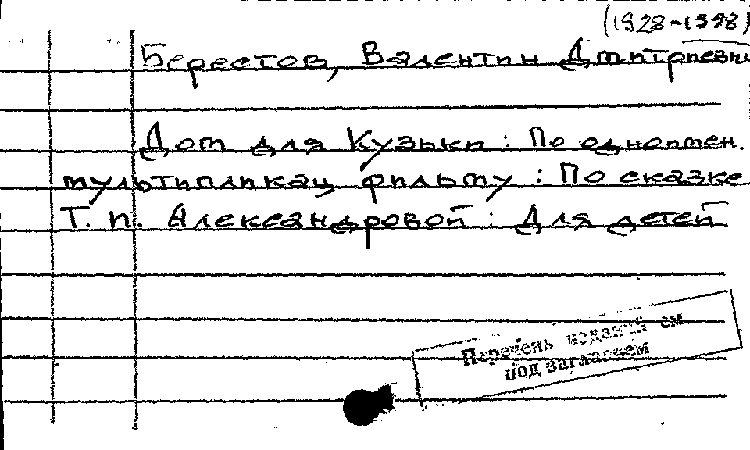 (1928-1998)
Берестов, Валентин Дмитриевич
Дом для Кузьки : По одноимен.
мультипликац. фильму : По сказке
Т. И. Александровой : Для детей
Перечень изданий см
под заглавием